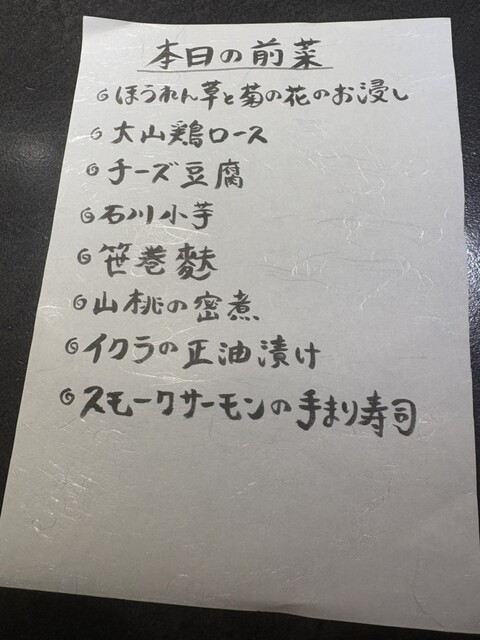 本日の前菜
๑ほうれん草と菊の花のお浸し
๑大山鶏ロース
๑チーズ豆腐
๑石川小芋
๑笹巻麩
๑山桃の密煮
๑イクラの正油漬け
๑スモークサーモンの手まり寿司